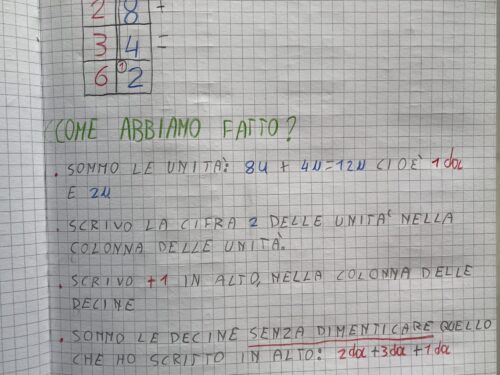 2 8 +
3 4 =
6 1 2
COME ABBIAMO FATTO?
. SOMMO LE UNITÀ: 8u + 4u = 12u CIOÈ 1da
E 2u
. SCRIVO LA CIFRA 2 DELLE UNITÀ NELLA
COLONNA DELLE UNITÀ.
. SCRIVO +1 IN ALTO, NELLA COLONNA DELLE
DECINE
. SOMMO LE DECINE SENZA DIMENTICARE QUELLO
CHE HO SCRITTO IN ALTO: 2da + 3da + 1da